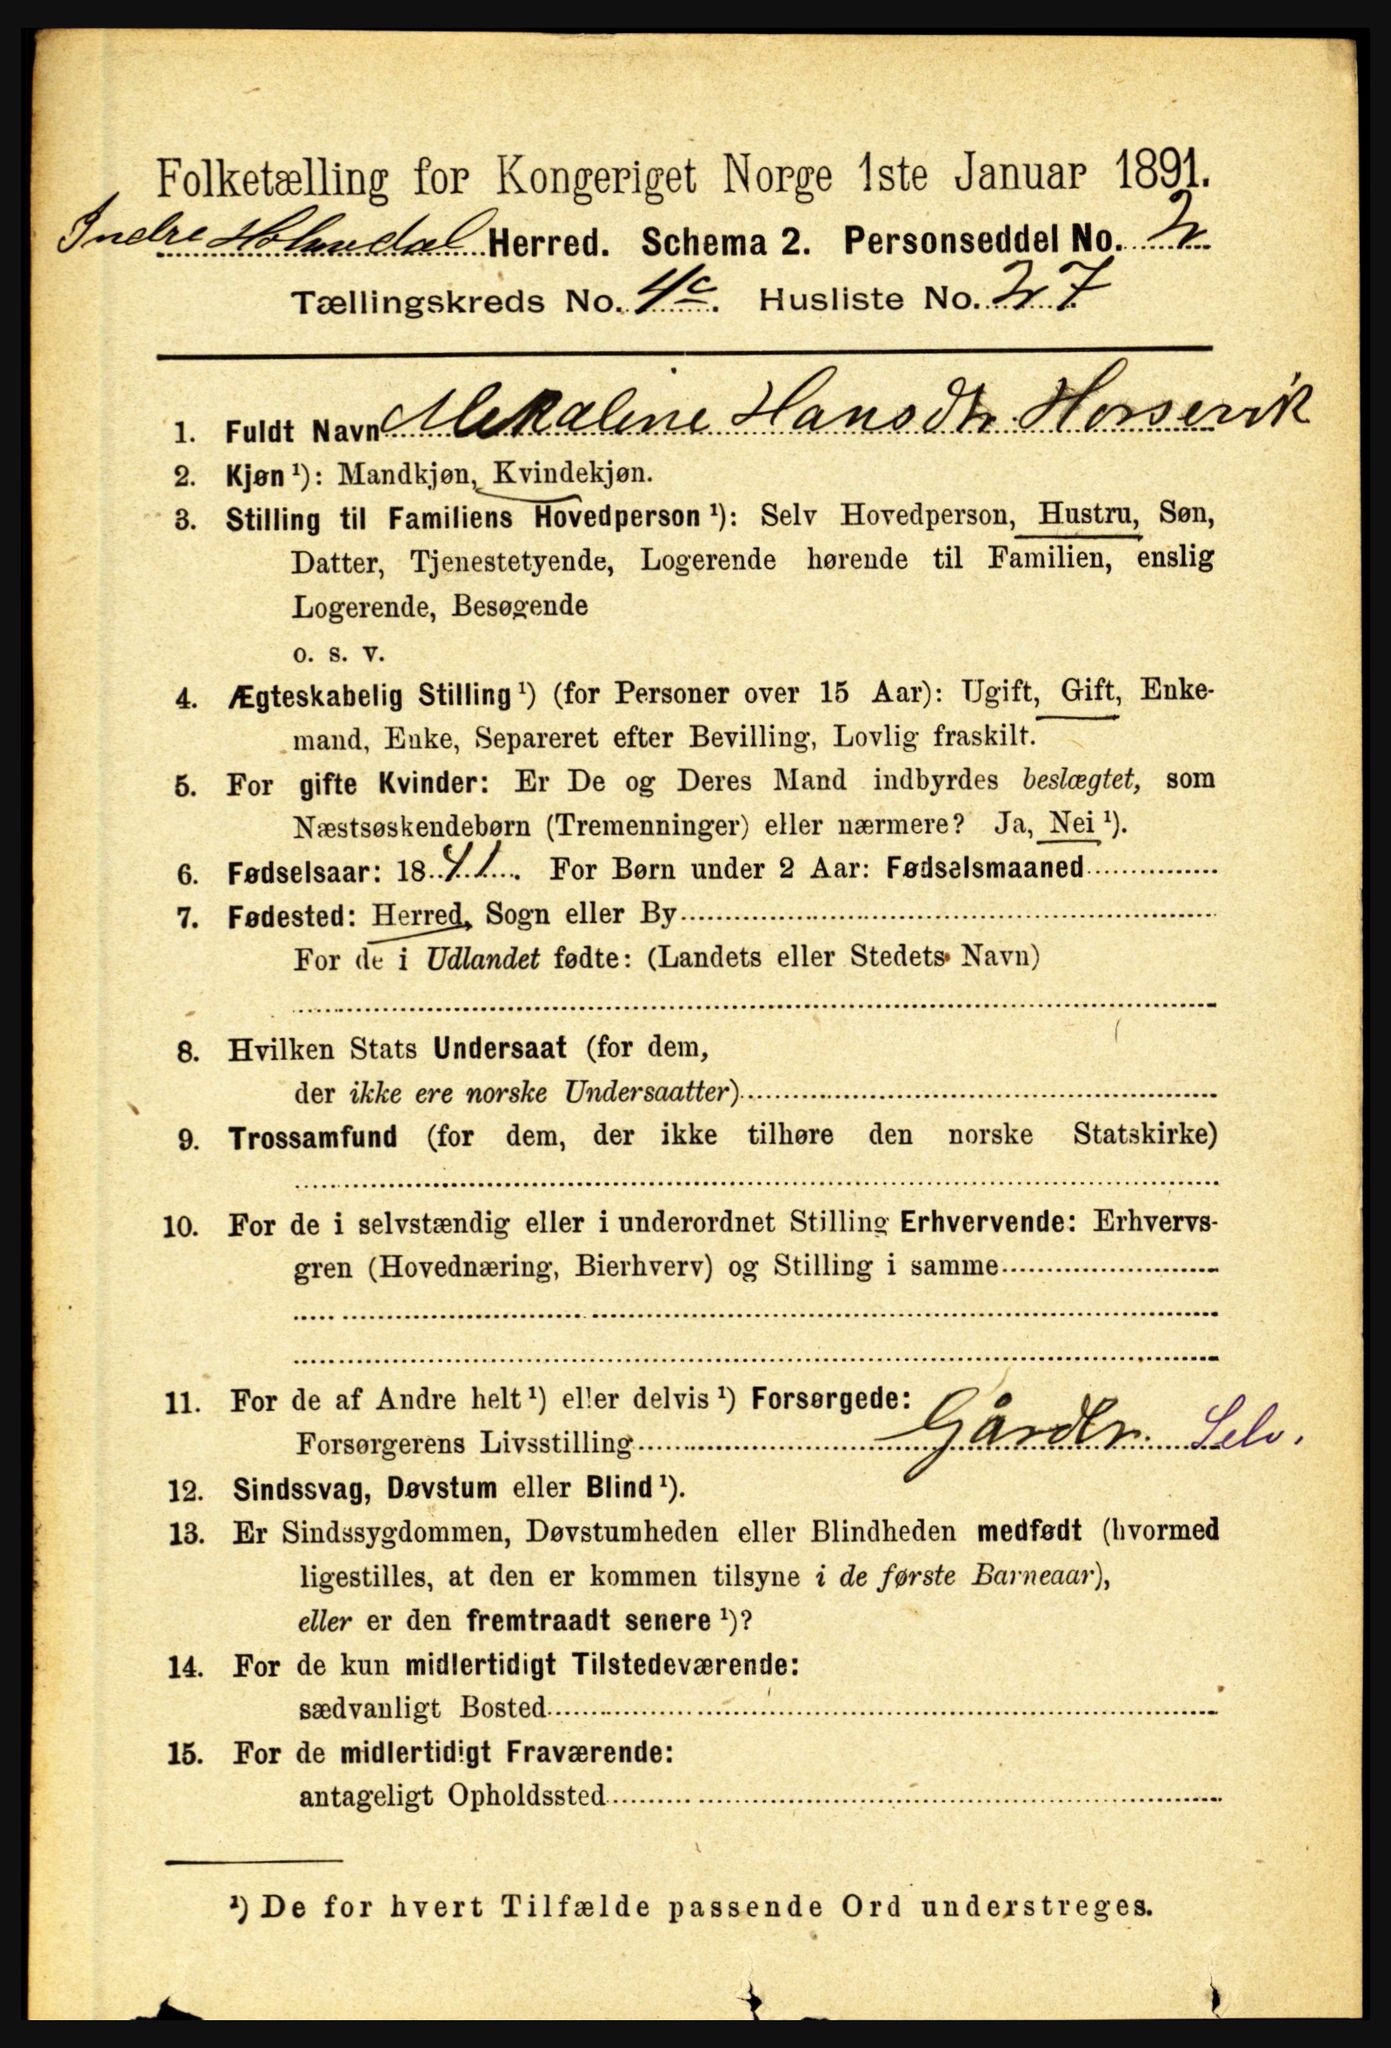 Folketælling for Kongeriget Norge 1ste Januar 1891.
Indre Holmedal Herred. Schema 2. Personseddel No. 2
Tællingskreds No. 4c. Husliste No. 27
1. Fuldt Navn Mekaline Hansdtr Horsevik
2. Kjøn ¹): Mandkjøn, Kvindekjøn.
3. Stilling til Familiens Hovedperson ¹): Selv Hovedperson, Hustru, Søn,
Datter, Tjenestetyende, Logerende hørende til Familien, enslig
Logerende, Besøgende
o. s. v.
4. Ægteskabelig Stilling ¹) (for Personer over 15 Aar): Ugift, Gift, Enke-
mand, Enke, Separeret efter Bevilling, Lovlig fraskilt.
5. For gifte Kvinder: Er De og Deres Mand indbyrdes beslægtet, som
Næstsøskendebørn (Tremenninger) eller nærmere? Ja, Nei ¹).
6. Fødselsaar: 1841. For Børn under 2 Aar: Fødselsmaaned
7. Fødested: Herred, Sogn eller By
For de i Udlandet fødte: (Landets eller Stedets Navn)
8. Hvilken Stats Undersaat (for dem,
der ikke ere norske Undersaatter)
9. Trossamfund (for dem, der ikke tilhøre den norske Statskirke)
10. For de i selvstændig eller i underordnet Stilling Erhvervende: Erhvervs-
gren (Hovednæring, Bierhverv) og Stilling i samme
11. For de af Andre helt ¹) eller delvis ¹) Forsørgede:
Forsørgerens Livsstilling Gårdbr. Selv.
12. Sindssvag, Døvstum eller Blind ¹).
13. Er Sindssygdommen, Døvstumheden eller Blindheden medfødt (hvormed
ligestilles, at den er kommen tilsyne i de første Barneaar),
eller er den fremtraadt senere ¹)?
14. For de kun midlertidigt Tilstedeværende:
sædvanligt Bosted
15. For de midlertidigt Fraværende:
antageligt Opholdssted
¹) De for hvert Tilfælde passende Ord understreges.